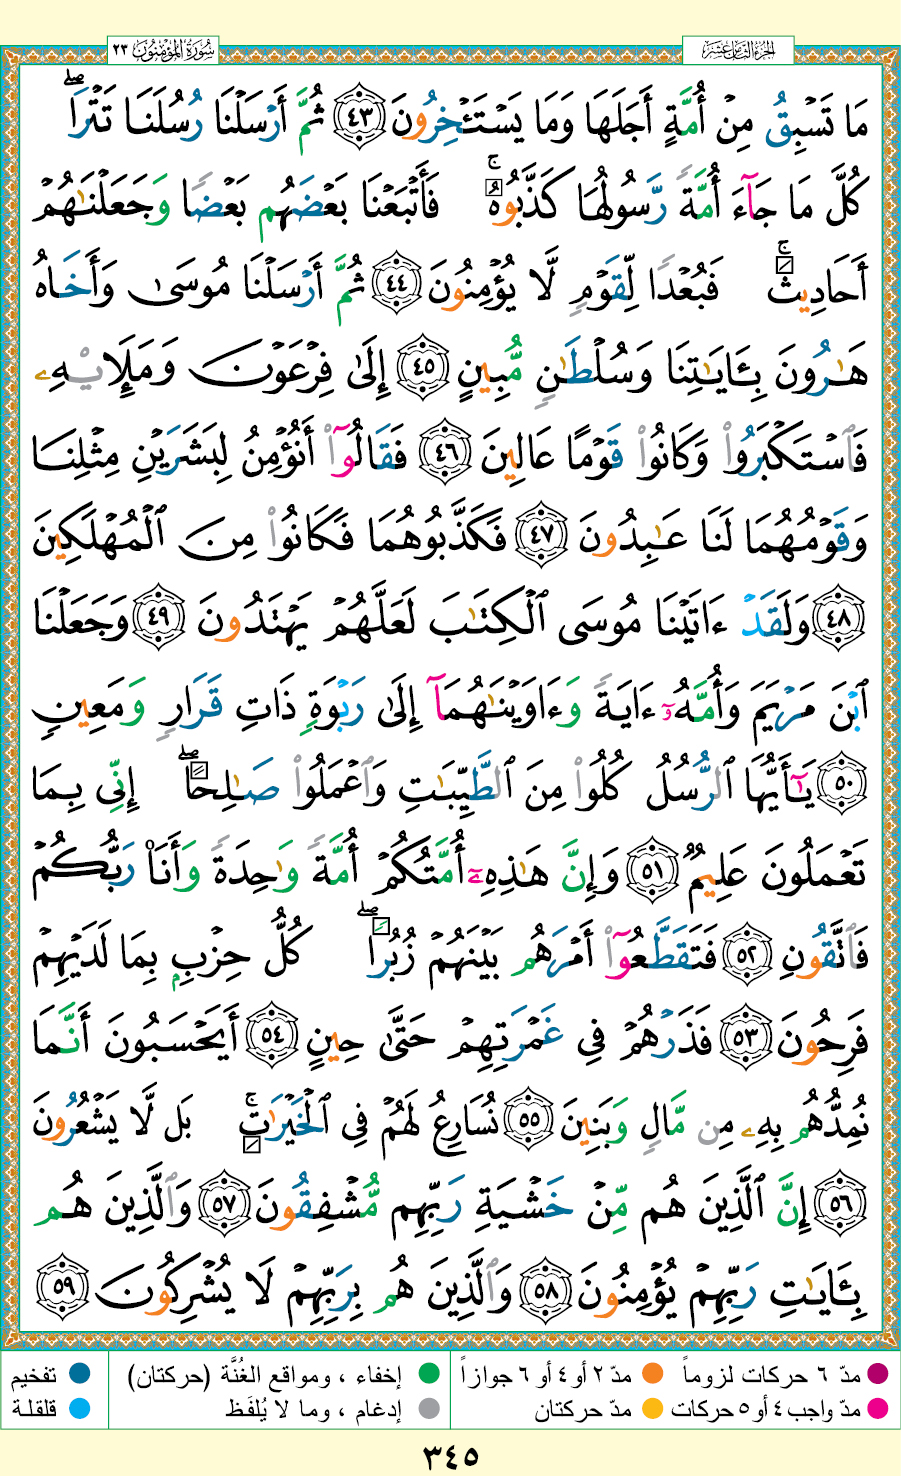 سُورَةُ المُؤْمِنُون ٢٣
الجُزْءُ الثَّامِن عَشَر
مَا تَسْبِقُ مِنْ أُمَّةٍ أَجَلَهَا وَمَا يَسْتَـْٔخِرُونَ ٤٣ ثُمَّ أَرْسَلْنَا رُسُلَنَا تَتْرَاۖ
كُلَّ مَا جَآءَ أُمَّةً رَّسُولُهَا كَذَّبُوهُۚ فَأَتْبَعْنَا بَعْضَهُم بَعْضًا وَجَعَلْنَٰهُمْ
أَحَادِيثَۚ فَبُعْدًا لِّقَوْمٍ لَّا يُؤْمِنُونَ ٤٤ ثُمَّ أَرْسَلْنَا مُوسَىٰ وَأَخَاهُ
هَٰرُونَ بِـَٔايَٰتِنَا وَسُلْطَٰنٍ مُّبِينٍ ٤٥ إِلَىٰ فِرْعَوْنَ وَمَلَإِيْهِۦ
فَٱسْتَكْبَرُوا۟ وَكَانُوا۟ قَوْمًا عَالِينَ ٤٦ فَقَالُوٓا۟ أَنُؤْمِنُ لِبَشَرَيْنِ مِثْلِنَا
وَقَوْمُهُمَا لَنَا عَٰبِدُونَ ٤٧ فَكَذَّبُوهُمَا فَكَانُوا۟ مِنَ ٱلْمُهْلَكِينَ
٤٨ وَلَقَدْ ءَاتَيْنَا مُوسَى ٱلْكِتَٰبَ لَعَلَّهُمْ يَهْتَدُونَ ٤٩ وَجَعَلْنَا
ٱبْنَ مَرْيَمَ وَأُمَّهُۥٓ ءَايَةً وَءَاوَيْنَٰهُمَآ إِلَىٰ رَبْوَةٍ ذَاتِ قَرَارٍ وَمَعِينٍ
٥٠ يَٰٓأَيُّهَا ٱلرُّسُلُ كُلُوا۟ مِنَ ٱلطَّيِّبَٰتِ وَٱعْمَلُوا۟ صَٰلِحًاۖ إِنِّي بِمَا
تَعْمَلُونَ عَلِيمٌ ٥١ وَإِنَّ هَٰذِهِۦٓ أُمَّتُكُمْ أُمَّةً وَٰحِدَةً وَأَنَا۠ رَبُّكُمْ
فَٱتَّقُونِ ٥٢ فَتَقَطَّعُوٓا۟ أَمْرَهُم بَيْنَهُمْ زُبُرًاۖ كُلُّ حِزْبٍۭ بِمَا لَدَيْهِمْ
فَرِحُونَ ٥٣ فَذَرْهُمْ فِي غَمْرَتِهِمْ حَتَّىٰ حِينٍ ٥٤ أَيَحْسَبُونَ أَنَّمَا
نُمِدُّهُم بِهِۦ مِن مَّالٍ وَبَنِينَ ٥٥ نُسَارِعُ لَهُمْ فِي ٱلْخَيْرَٰتِۚ بَل لَّا يَشْعُرُونَ
٥٦ إِنَّ ٱلَّذِينَ هُم مِّنْ خَشْيَةِ رَبِّهِم مُّشْفِقُونَ ٥٧ وَٱلَّذِينَ هُم
بِـَٔايَٰتِ رَبِّهِمْ يُؤْمِنُونَ ٥٨ وَٱلَّذِينَ هُم بِرَبِّهِمْ لَا يُشْرِكُونَ ٥٩
مدّ ٦ حركات لزوماً مدّ ٢ أو ٤ أو ٦ جوازاً إخفاء ، ومواقع الغُنَّة (حركتان) تفخيم
مدّ واجب ٤ أو ٥ حركات مدّ حركتان إدغام ، وما لا يُلفَظ قلقلة
٣٤٥